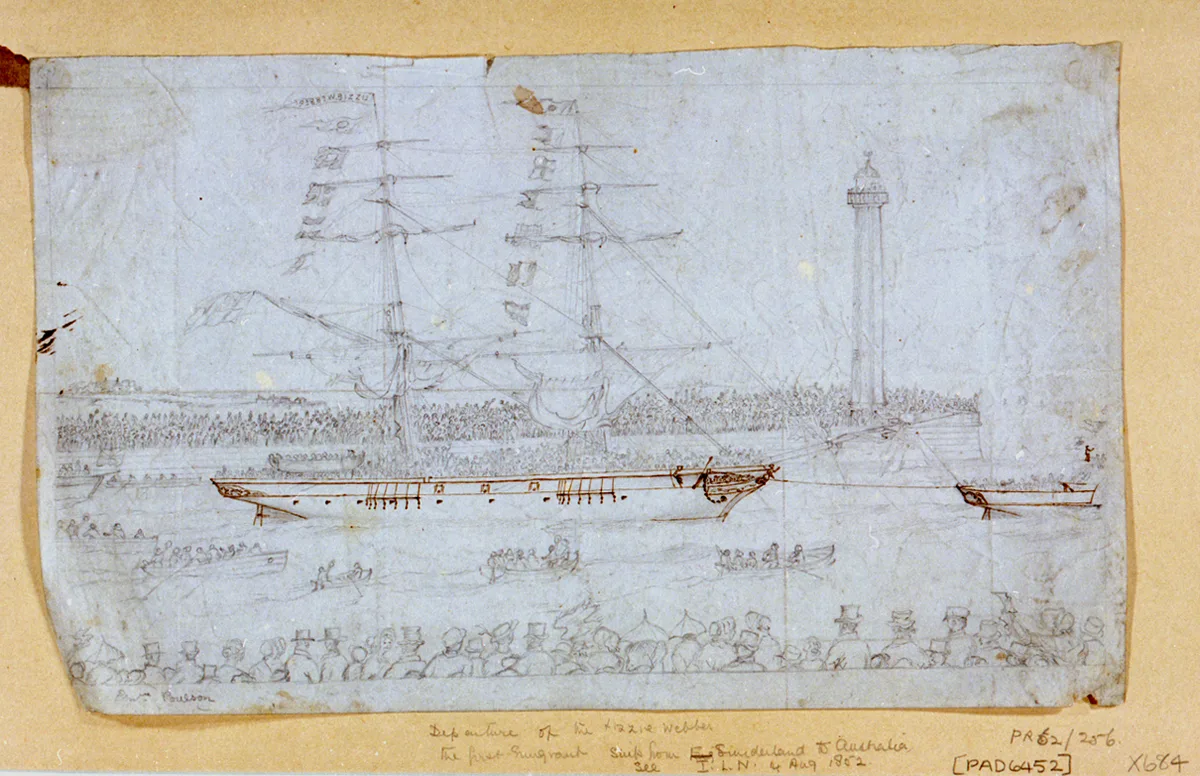 Poulson
Departure of the Lizzie Webber
the first Emigrant Ship from Sunderland to Australia
See I.L.N. 4 Aug 1852.
PR52/256.
[PAD6452]
X684